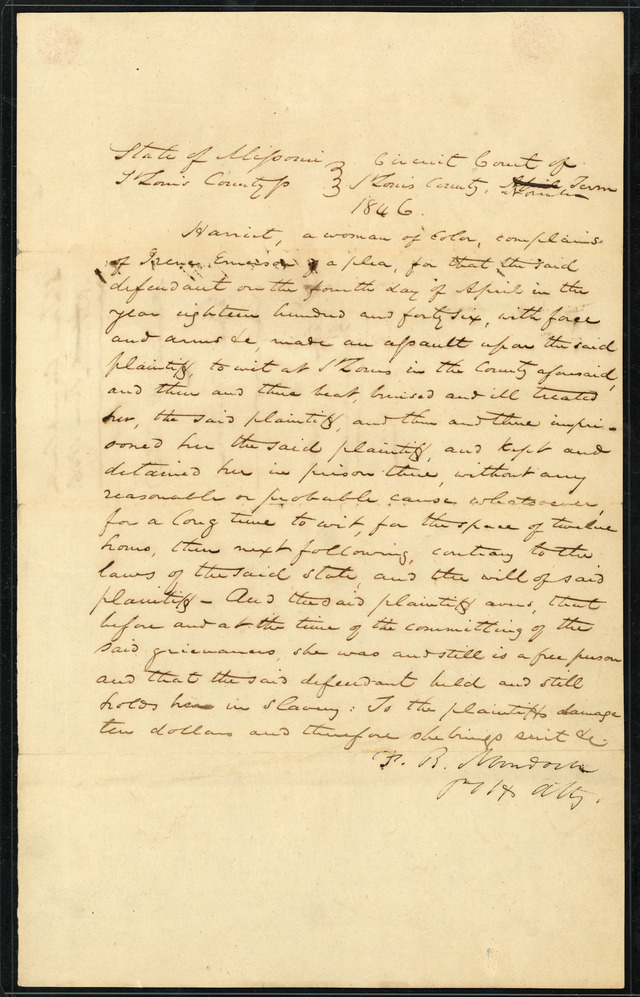 State of Missouri } Circuit Court of
St Louis County ss } St Louis County, April Term
1846.
Harriet, a woman of color, complains
of Irene Emerson of a plea, for that the said
defendant on the fourth day of April in the
year eighteen hundred and forty six, with force
and arms &c, made an assault upon the said
plaintiff, to wit at St Louis in the County aforesaid,
and then and there beat, bruised and ill treated
her, the said plaintiff, and then and there impri-
soned her the said plaintiff, and kept and
detained her in prison there, without any
reasonable or probable cause whatsoever,
for a long time to wit, for the space of twelve
hours, then next following, contrary to the
laws of the said State, and the will of said
plaintiff - And the said plaintiff avers, that
before and at the time of the committing of the
said grievances, she was and still is a free person
and that the said defendant held and still
holds her in slavery: To the plaintiffs damage
ten dollars and therefore she brings suit &c.
F. B. Murdoch
Atty.